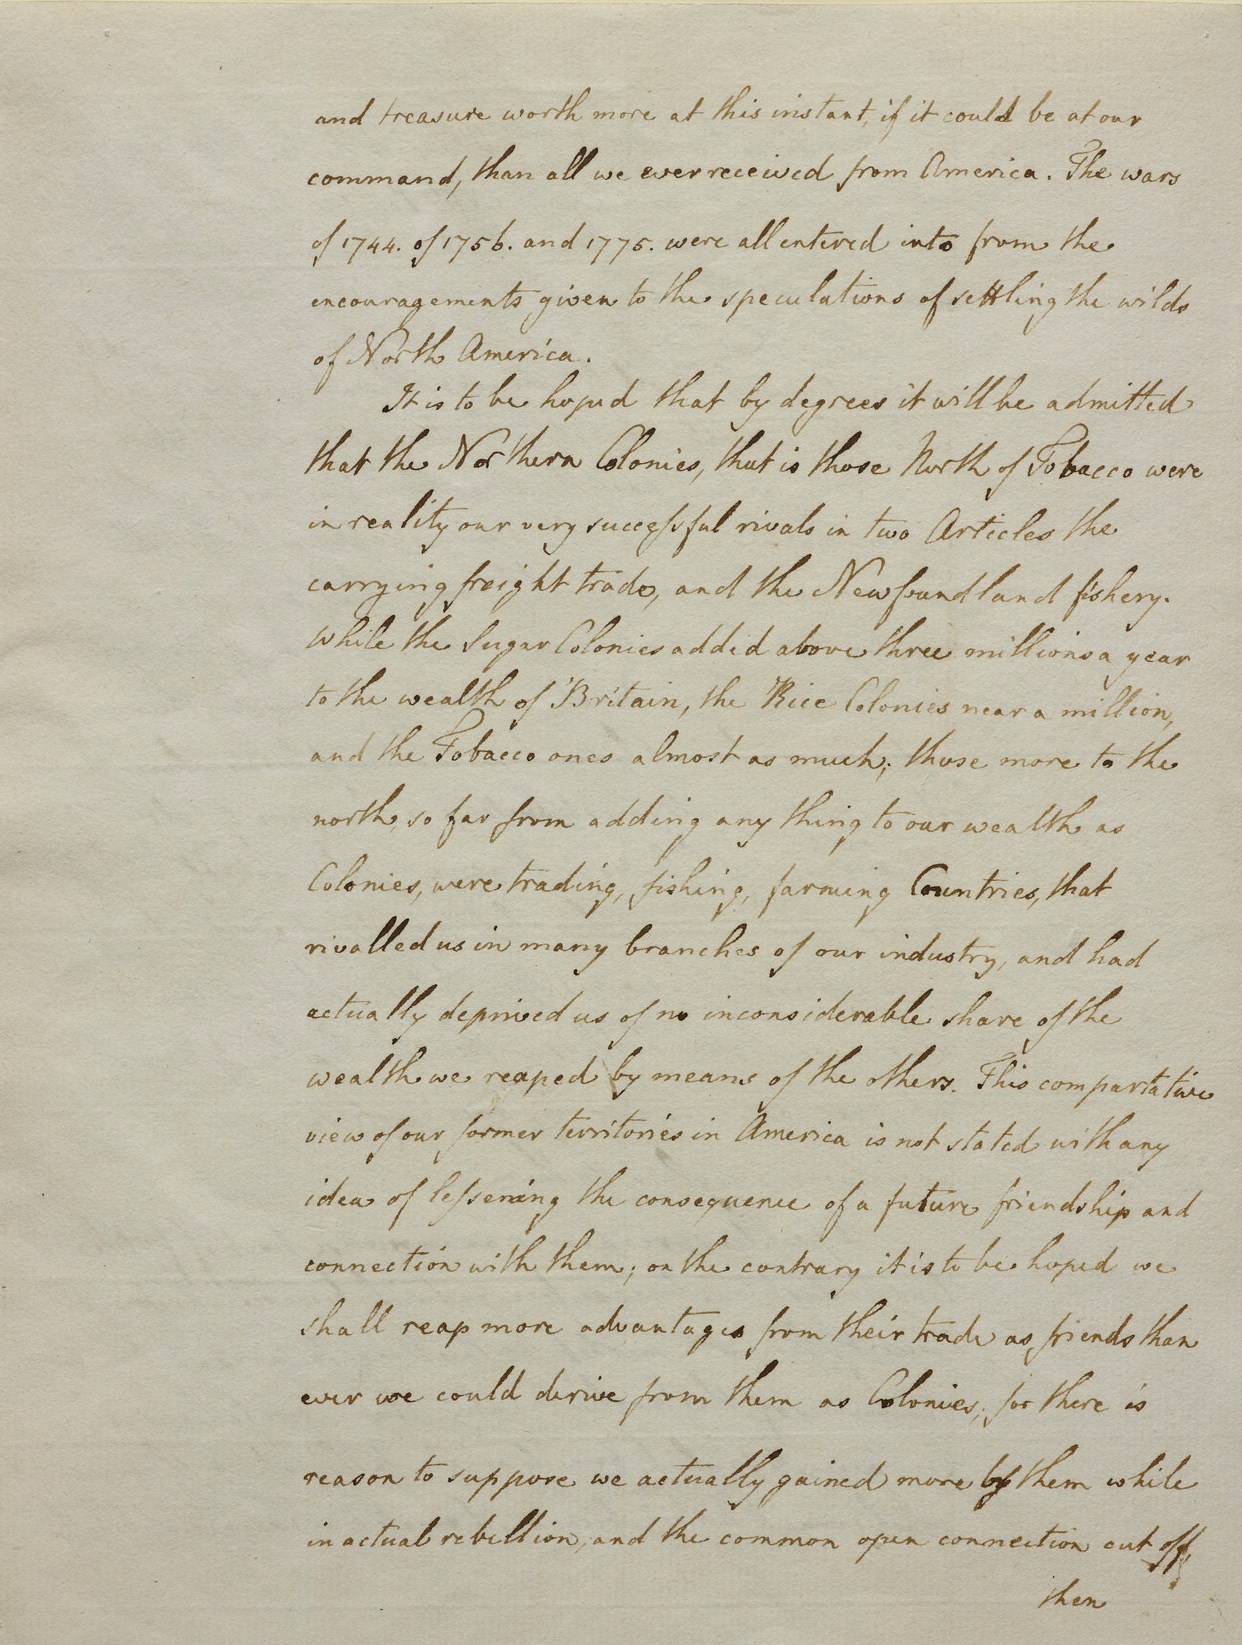 and treasure worth more at this instant, if it could be at our
command, than all we ever received from America. The wars
of 1744. of 1756. and 1775. were all entered into from the
encouragements given to the speculations of settling the wilds
of North America.
It is to be hoped that by degrees it will be admitted
that the Northern Colonies, that is those North of Tobacco were
in reality our very successful rivals in two Articles the
carrying freight trade, and the Newfoundland fishery.
While the Sugar Colonies added above three millions a year
to the wealth of Britain, the Rice Colonies near a million,
and the Tobacco ones almost as much; those more to the
north, so far from adding any thing to our wealth as
Colonies, were trading, fishing, farming Countries, that
rivalled us in many branches of our industry, and had
actually deprived us of no inconsiderable share of the
wealth we reaped by means of the others. This compartative
view of our former territories in America is not stated with any
idea of lessening the consequence of a future friendship and
connection with them; on the contrary it is to be hoped we
shall reap more advantages from their trade as friends than
ever we could derive from them as Colonies; for there is
reason to suppose we actually gained more by them while
in actual rebellion, and the common open connection cut off,
then